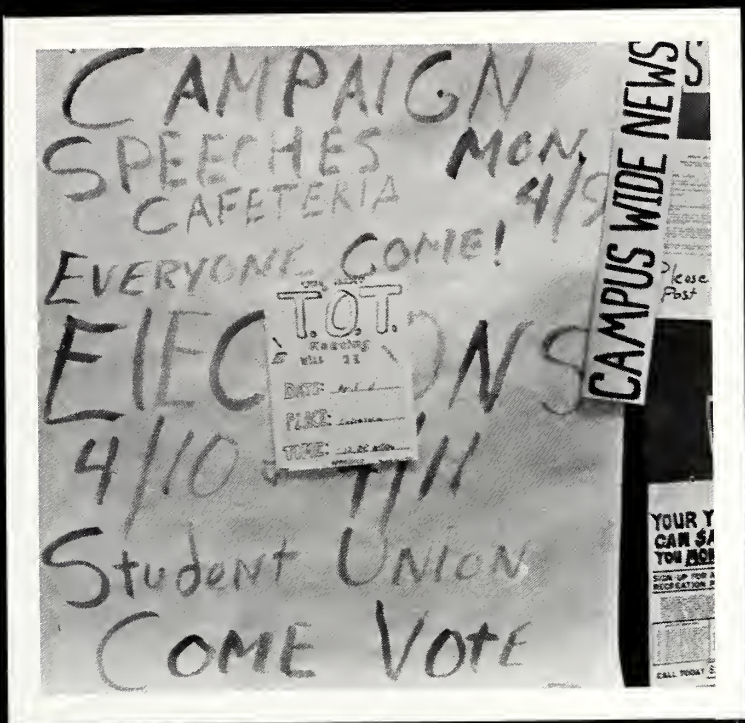 CAMPAIGN
SPEECHES MON.
CAFETERIA 4/9
EVERYONE COME!
ElEC ON S
4/10 4/11
StudeNt UNION
COME VOtE
T.O.T.
Meeting
DATE:
PLACE:
TIME:
CAMPUS WIDE NEWS
S
Please
Post
YOUR Y
CAN SA
YOU MON
SIGN UP FOR A
RECREATION P
CALL TODAY